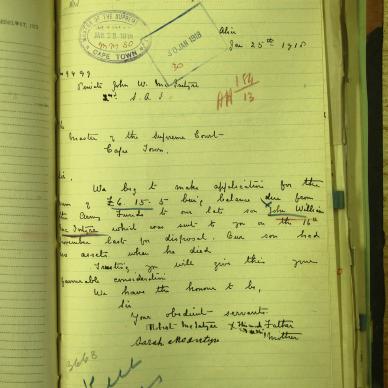 MASTER OF THE SUPREME
JAN 28 1918
CAPE TOWN
30 JAN 1918
Alice
Jan 25th 1918
9499
Private John W. McIntyre
2nd S. A. I.
184
13
Master of the Supreme Court
Cape Town.
We beg to make application for the
of £6. 15. 5 being balance due from
the Army Funds to our late son John William
McIntyre which was sent to you on the 16th
last for disposal. Our son had
no assets when he died
Trusting you will give this your
favourable consideration
We have the honour to be,
Sir
Your obedient servants
Robert McIntyre X Father
Sarah McIntyre Mother
3668